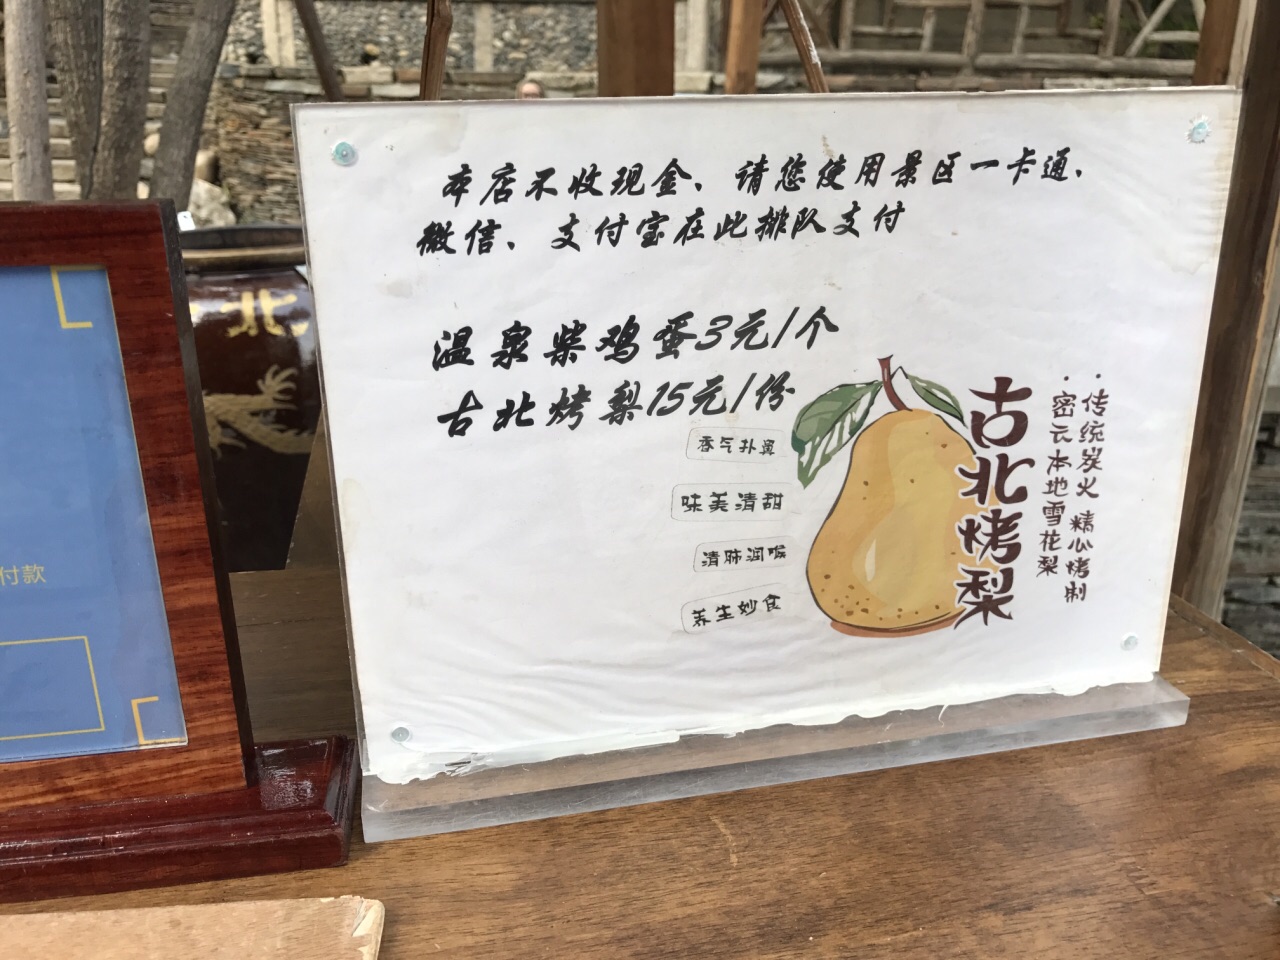 本店不收现金、请您使用景区一卡通、
微信、支付宝在此排队支付
温泉柴鸡蛋3元/个
古北烤梨15元/份
香气扑鼻
味美清甜
清肺润喉
养生妙食
古北烤梨
·传统炭火 精心烤制
·密云本地雪花梨
北
付款